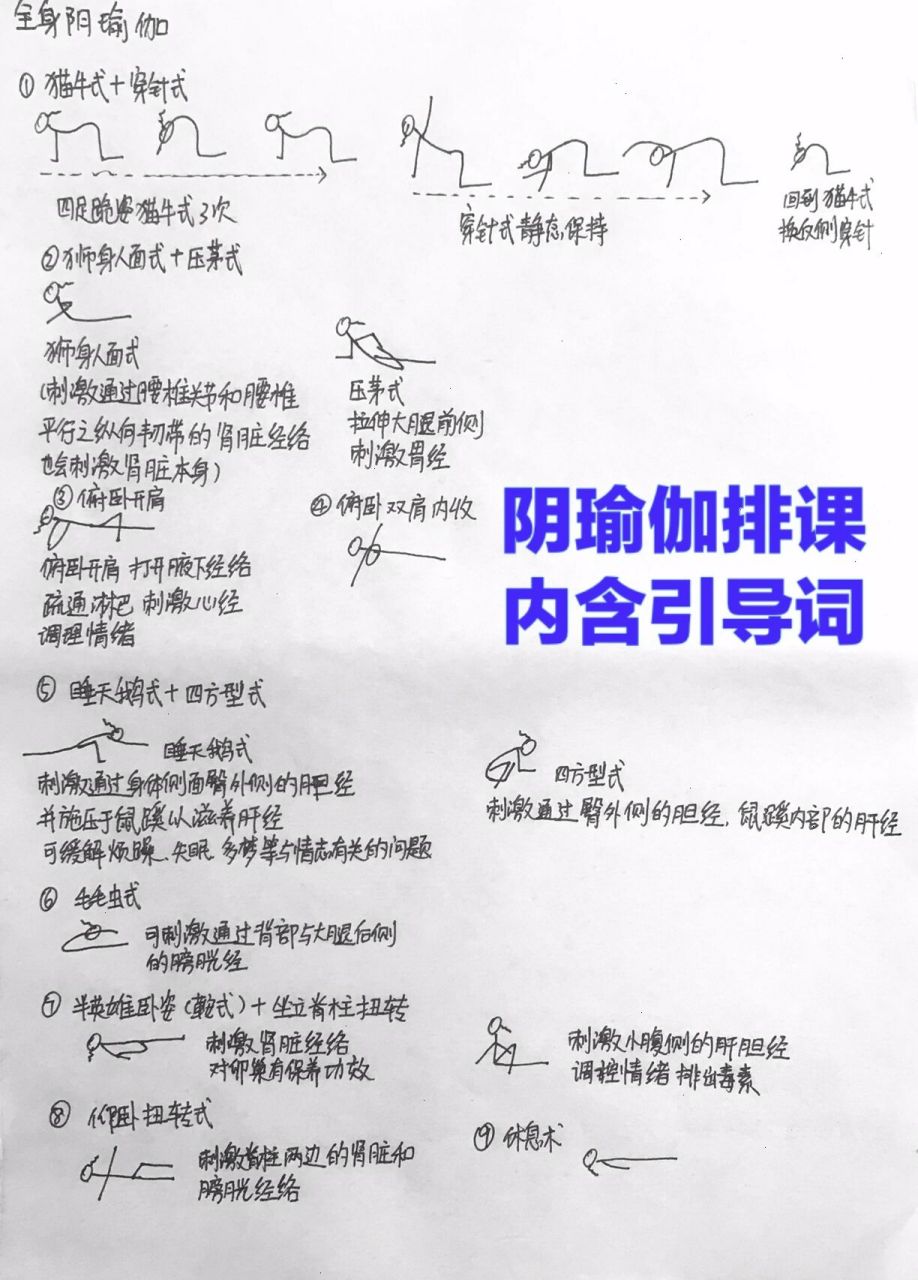 全身阴瑜伽
① 猫牛式+穿针式
四足跪姿猫牛式3次
穿针式静态保持
回到猫牛式
换反侧穿针
② 狮身人面式+压茅式
狮身人面式
(刺激通过腰椎关节和腰椎
平行之纵向韧带的肾脏经络
也会刺激肾脏本身)
压茅式
拉伸大腿前侧
刺激胃经
③ 俯卧开肩
俯卧开肩 打开腋下经络
疏通淋巴 刺激心经
调理情绪
④ 俯卧双肩内收
阴瑜伽排课
内含引导词
⑤ 睡天鹅式+四方型式
睡天鹅式
刺激通过身体侧面臀外侧的胆经
并施压于鼠蹊以滋养肝经
可缓解烦躁、失眠、多梦等与情志有关的问题
四方型式
刺激通过臀外侧的胆经、鼠蹊内部的肝经
⑥ 毛毛虫式
可刺激通过背部与大腿后侧
的膀胱经
⑦ 半英雄卧姿(乾式)+坐立脊柱扭转
刺激肾脏经络
对卵巢有保养功效
刺激小腹侧的肝胆经
调控情绪 排出毒素
⑧ 仰卧扭转式
刺激脊柱两边的肾脏和
膀胱经络
⑨ 休息术